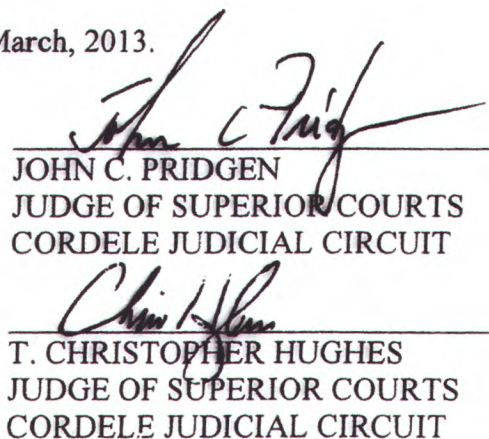 March, 2013.
John C Pridg
JOHN C. PRIDGEN
JUDGE OF SUPERIOR COURTS
CORDELE JUDICIAL CIRCUIT
T. CHRISTOPHER HUGHES
JUDGE OF SUPERIOR COURTS
CORDELE JUDICIAL CIRCUIT